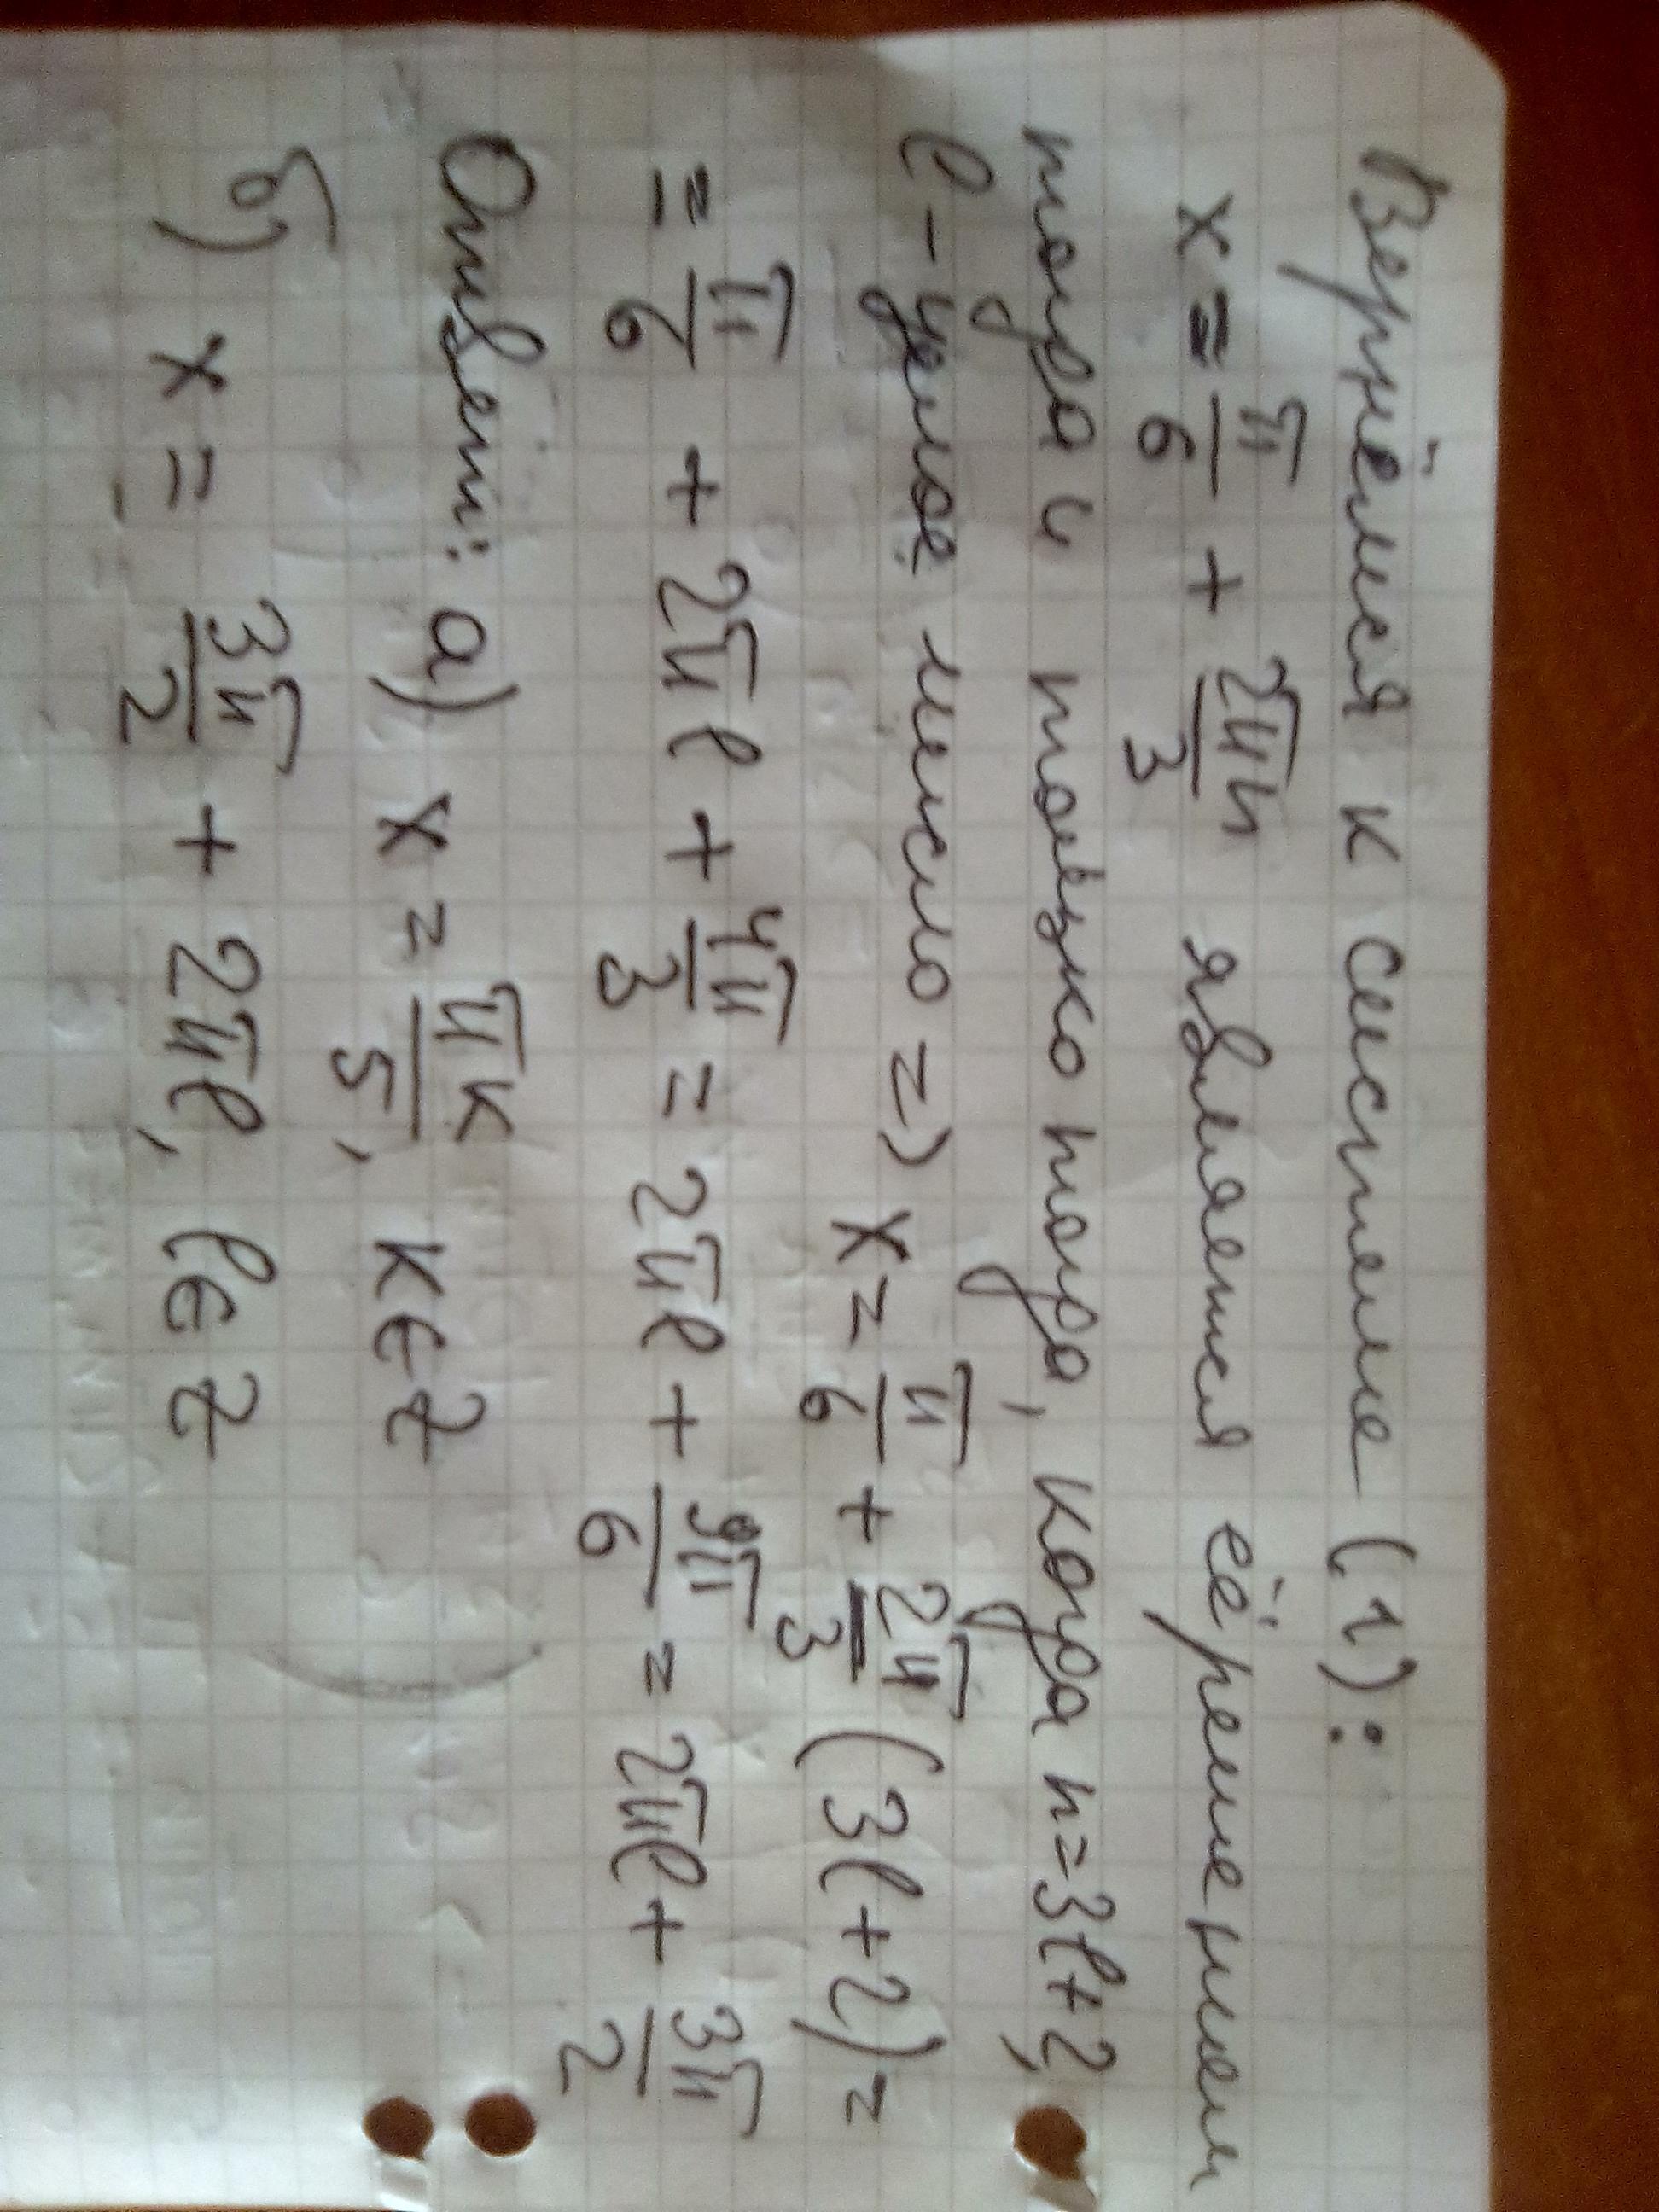 Вернёмся к системе (1):
x = π/6 + 2πn/3 является её решением
тогда и только тогда, когда n=3l+2,
l - целое число => x = π/6 + 2π/3 (3l+2) =
= π/6 + 2πl + 4π/3 = 2πl + 9π/6 = 2πl + 3π/2
Ответ: а) x = πk/5, k ∈ Z
б) x = 3π/2 + 2πl, l ∈ Z